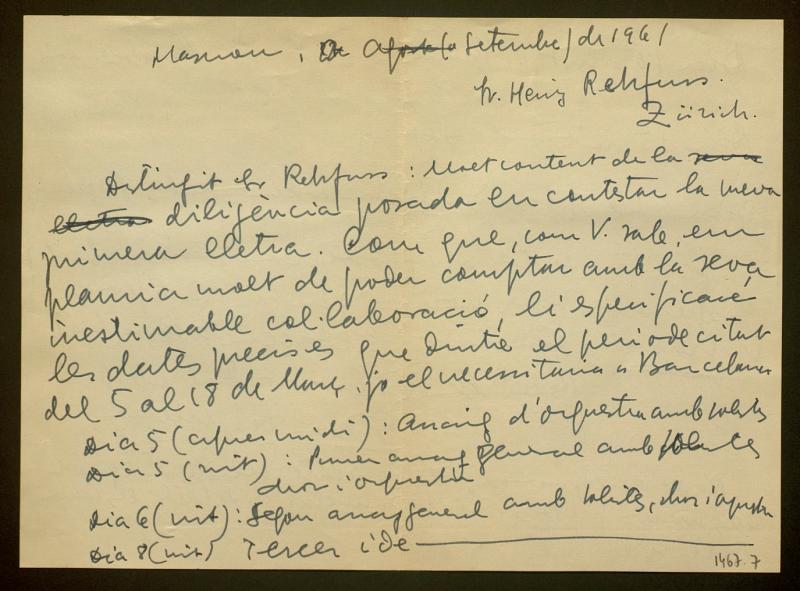 Masnou, Agost (o Setembre) de 1961
Sr. Heinz Rehfuss.
Zürich.
Distingit Sr Rehfuss: Molt content de la seva
lletra diligència posada en contestar la meva
primera lletra. Com que, com V. sab, em
plauria molt de poder comptar amb la seva
inestimable col·laboració, li especificaré
les dates precises que dintre el periode citat
del 5 al 18 de Març. jo el necessitaria a Barcelona
Dia 5 (apres midi): Assaig d'orquestra amb solistes
Dia 5 (nit): Primer assaig general amb solistes
chor i orquestra
Dia 6 (nit): Segon assaig general amb solistes, chor i orquestra
Dia 8 (nit) Tercer i de
1467.7